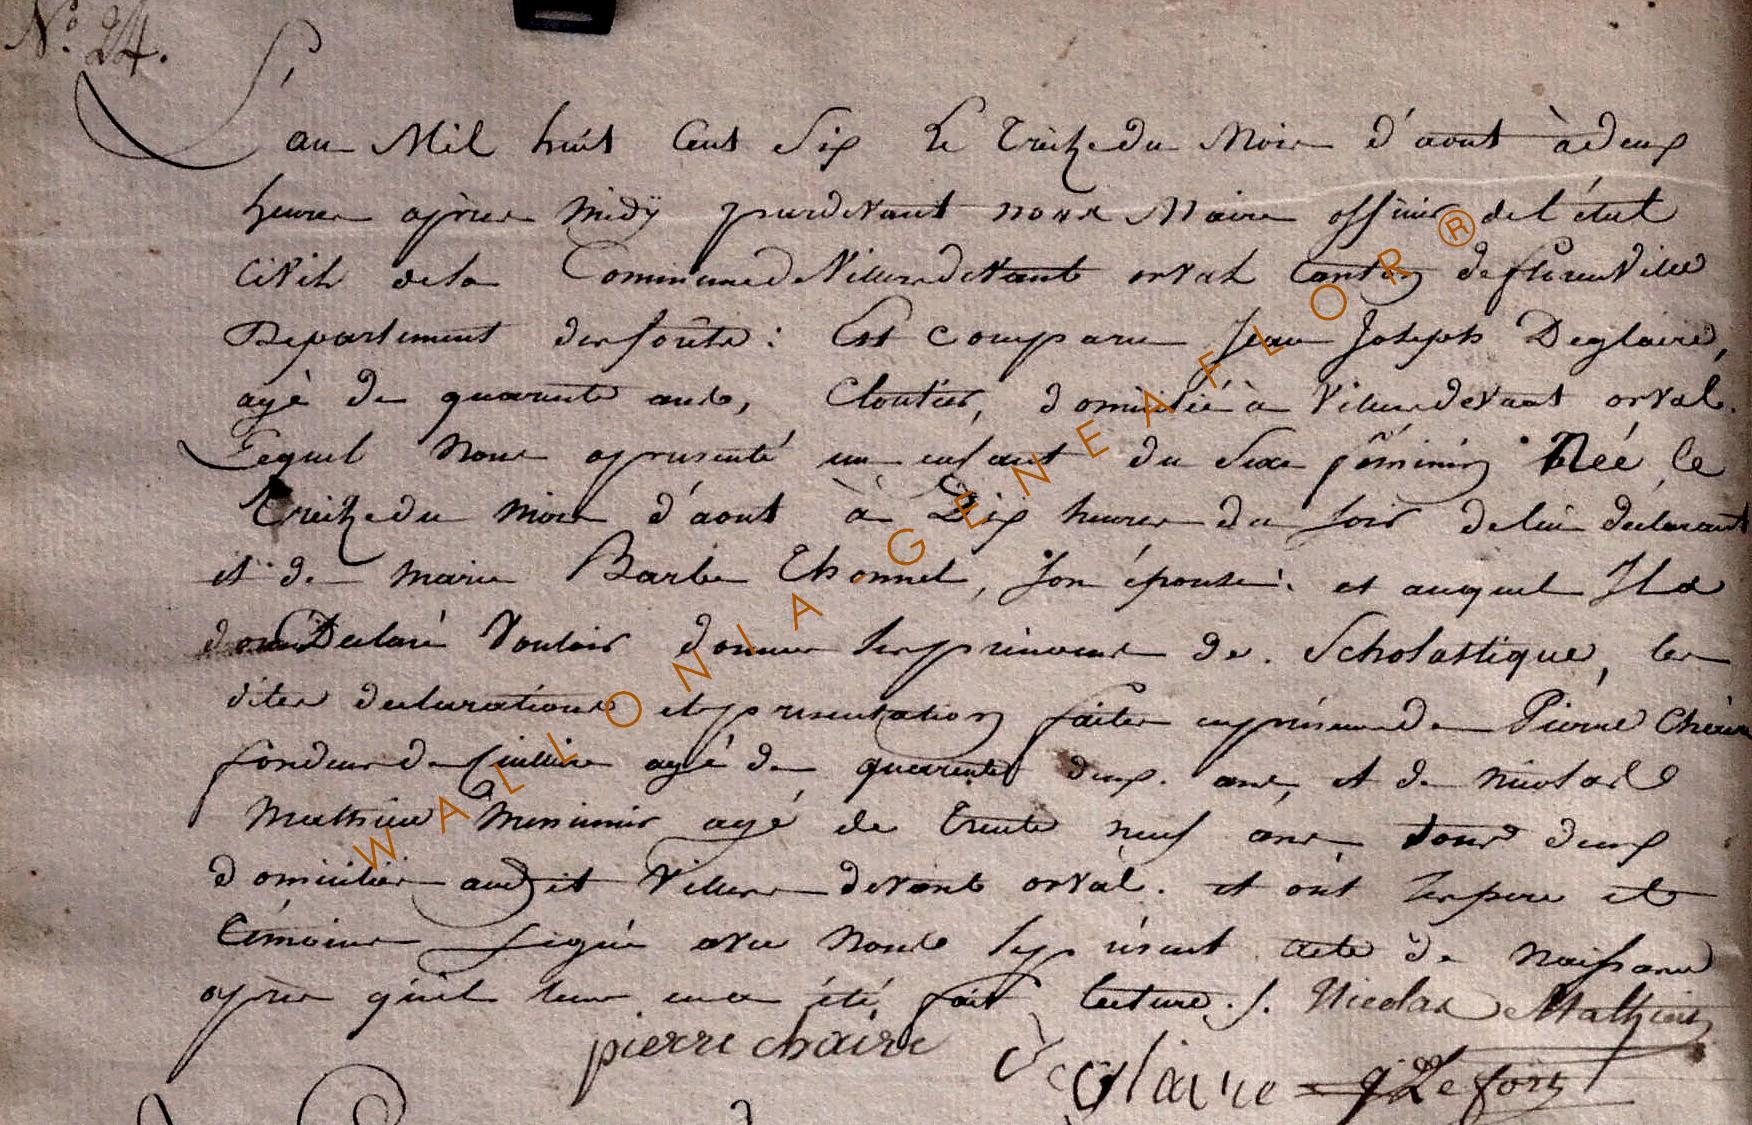 No. 24.
L'
an Mil huit Cent Six le Treize du Mois d'aout à deux
heures après midÿ pardevant nous Maire officier de l'état
Civil de la Commune de Villers devant orval Canton de florenville
Departement des forêts : Est comparu Jean Joseph Deglaire,
agé de quarante ans, Cloutier, domicilié à Villers devant orval.
Lequel nous a presenté un enfant du Sexe féminin Née le
Treize du mois d'aout à Dix heures du soir de lui declarant
et de marie Barbe Thonnel, son épouse : et auquel Il a
Declaré Vouloir donner les prenoms de. Scholastique, les
dites declarations et presentation faites en présence de Pierre Chaire
fondeur de Cuilliere agé de quarante deux. ans, et de nicolas
Mathieu Menuisier agé de trente neuf ans tous deux
domiciliés audit Villers devant orval. et ont les pere et
témoins signé avec nous le présent acte de naissance
après qu'il leur en a été fait lecture. /. Nicolas Mathieu
pierre chaire
Deglaire = Lefort
WALLONIA GENEAFLOR ®